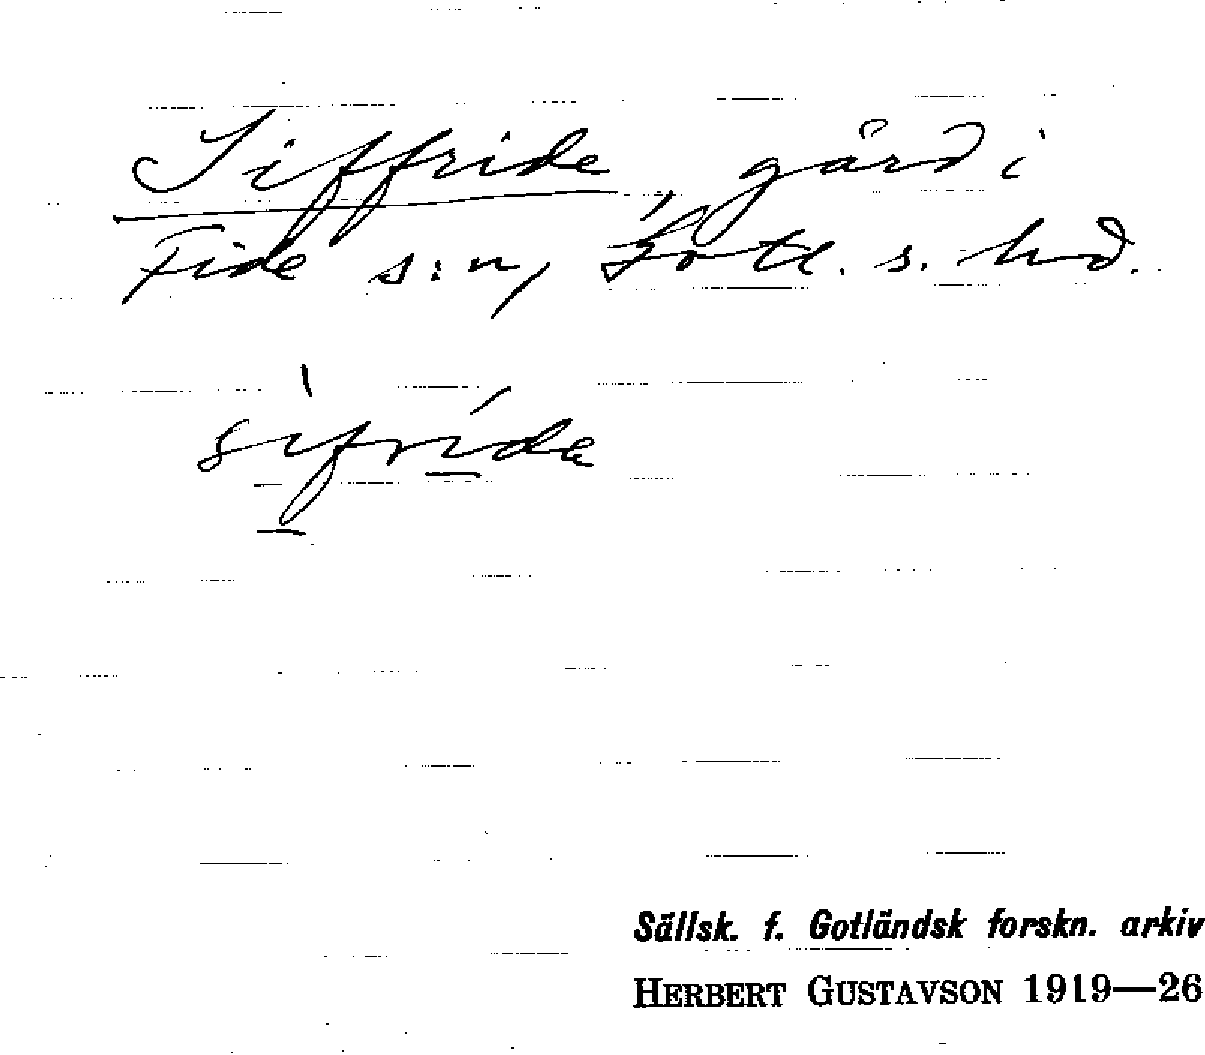 Siffride, gård i
Fide s:n, Gotl. s. hd.
sìfrída
Sällsk. f. Gotländsk forskn. arkiv
HERBERT GUSTAVSON 1919—26